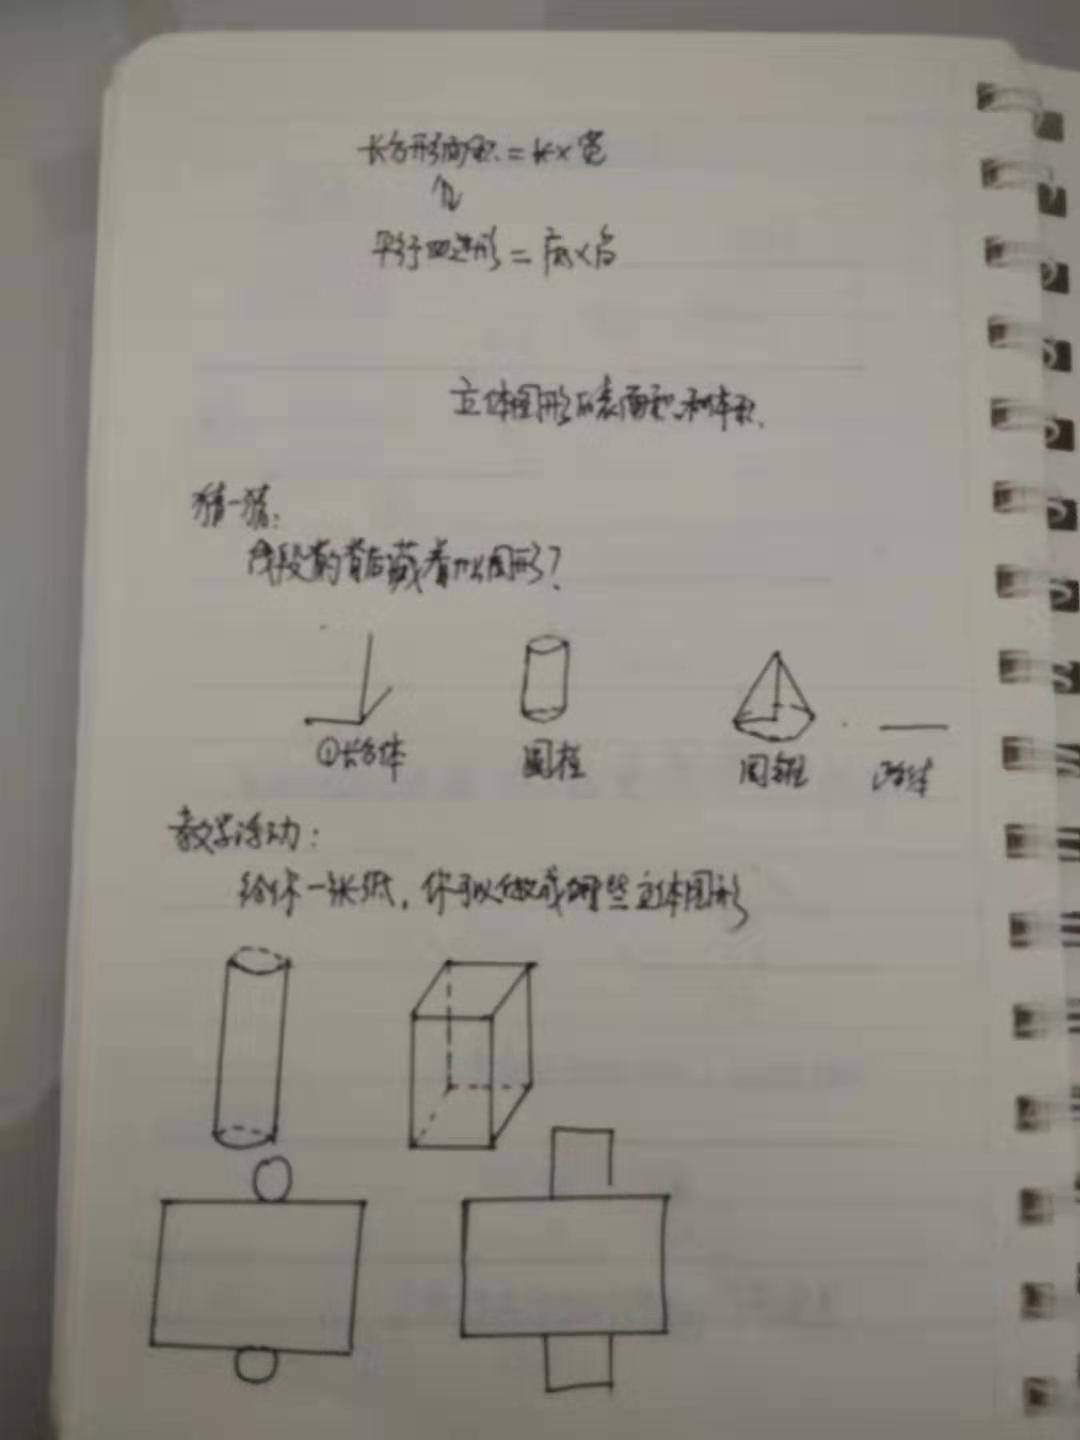 长方形面积=长×宽
平行四边形=底×高
立体图形的表面积和体积.
猜一猜:
线段的背后藏着什么图形?
①长方体 圆柱 圆锥
教学活动:
给你一张纸,你可以做成哪些立体图形